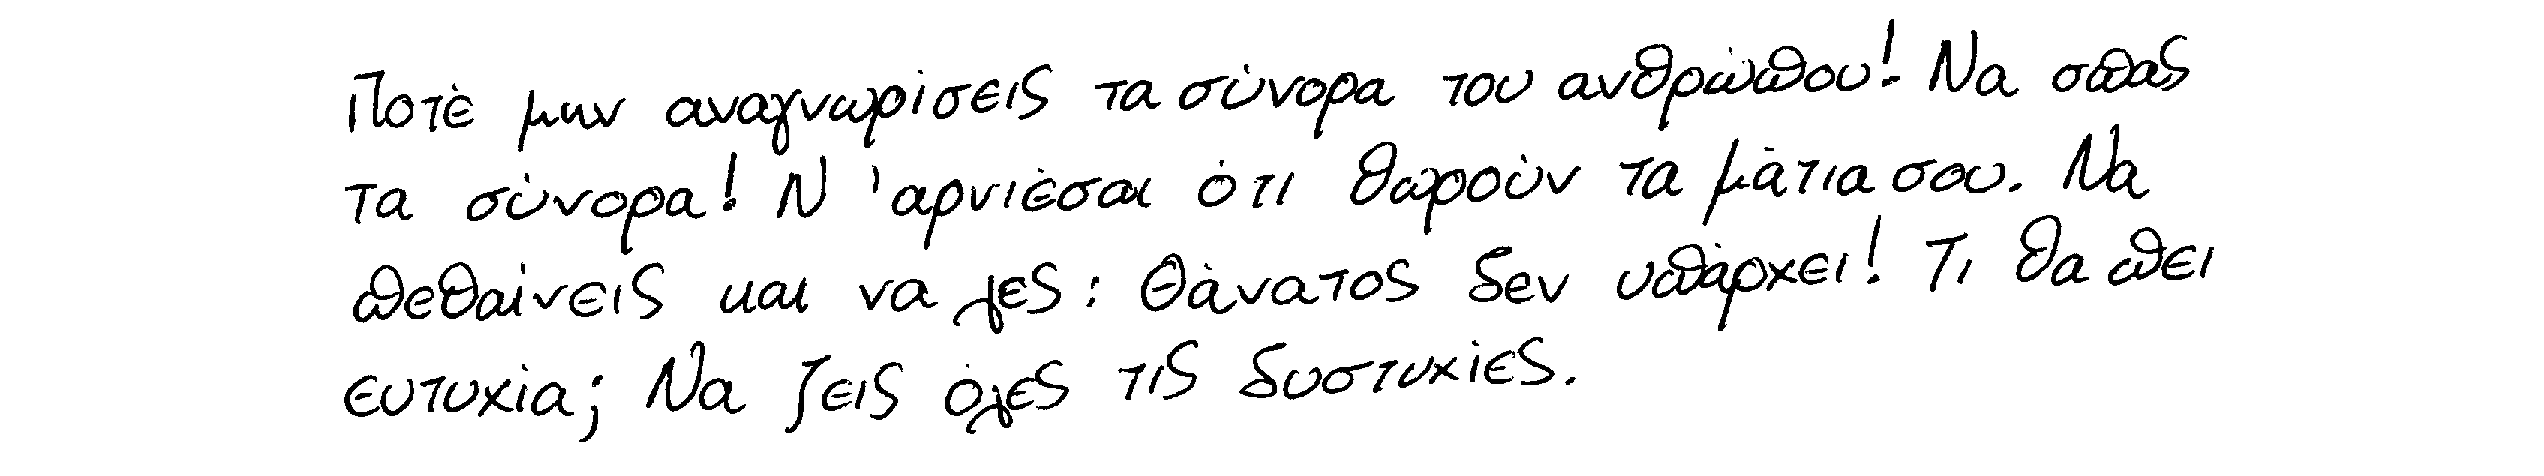 Ποτέ μην αναγνωρίσεις τα σύνορα του ανθρώπου! Να σπας
τα σύνορα! Ν 'αρνιέσαι ότι θωρούν τα μάτια σου. Να
πεθαίνεις και να λες: Θάνατος δεν υπάρχει! Τι θα πει
ευτυχία; Να ζεις όλες τις δυστυχίες.